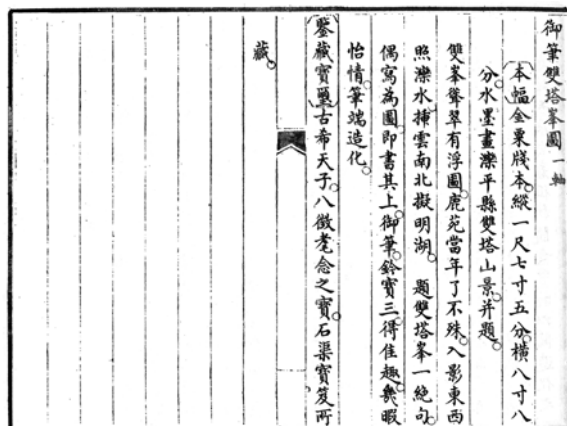 御筆雙塔峯圖一軸
本幅金粟牋本縱一尺七寸五分橫八寸八
分水墨畫灤平縣雙塔山景并題
雙峯聳翠有浮圖鹿苑當年了不殊入影東西
照灤水插雲南北擬明湖 題雙塔峯一絶句
偶寫為圖即書其上御筆鈐寶三得佳趣幾暇
怡情筆端造化
鑒藏寶璽古希天子八徵耄念之寶石渠寶笈所
藏